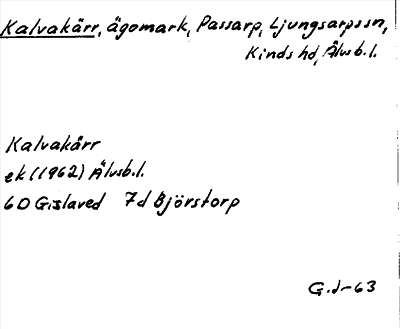 Kalvakärr, ägomark, Passarp, Ljungsarpssn,
Kinds hd, Älvsb.l.
Kalvakärr
ek (1962) Älvsb.l.
6D Gislaved 7d Björstorp
G.J-63